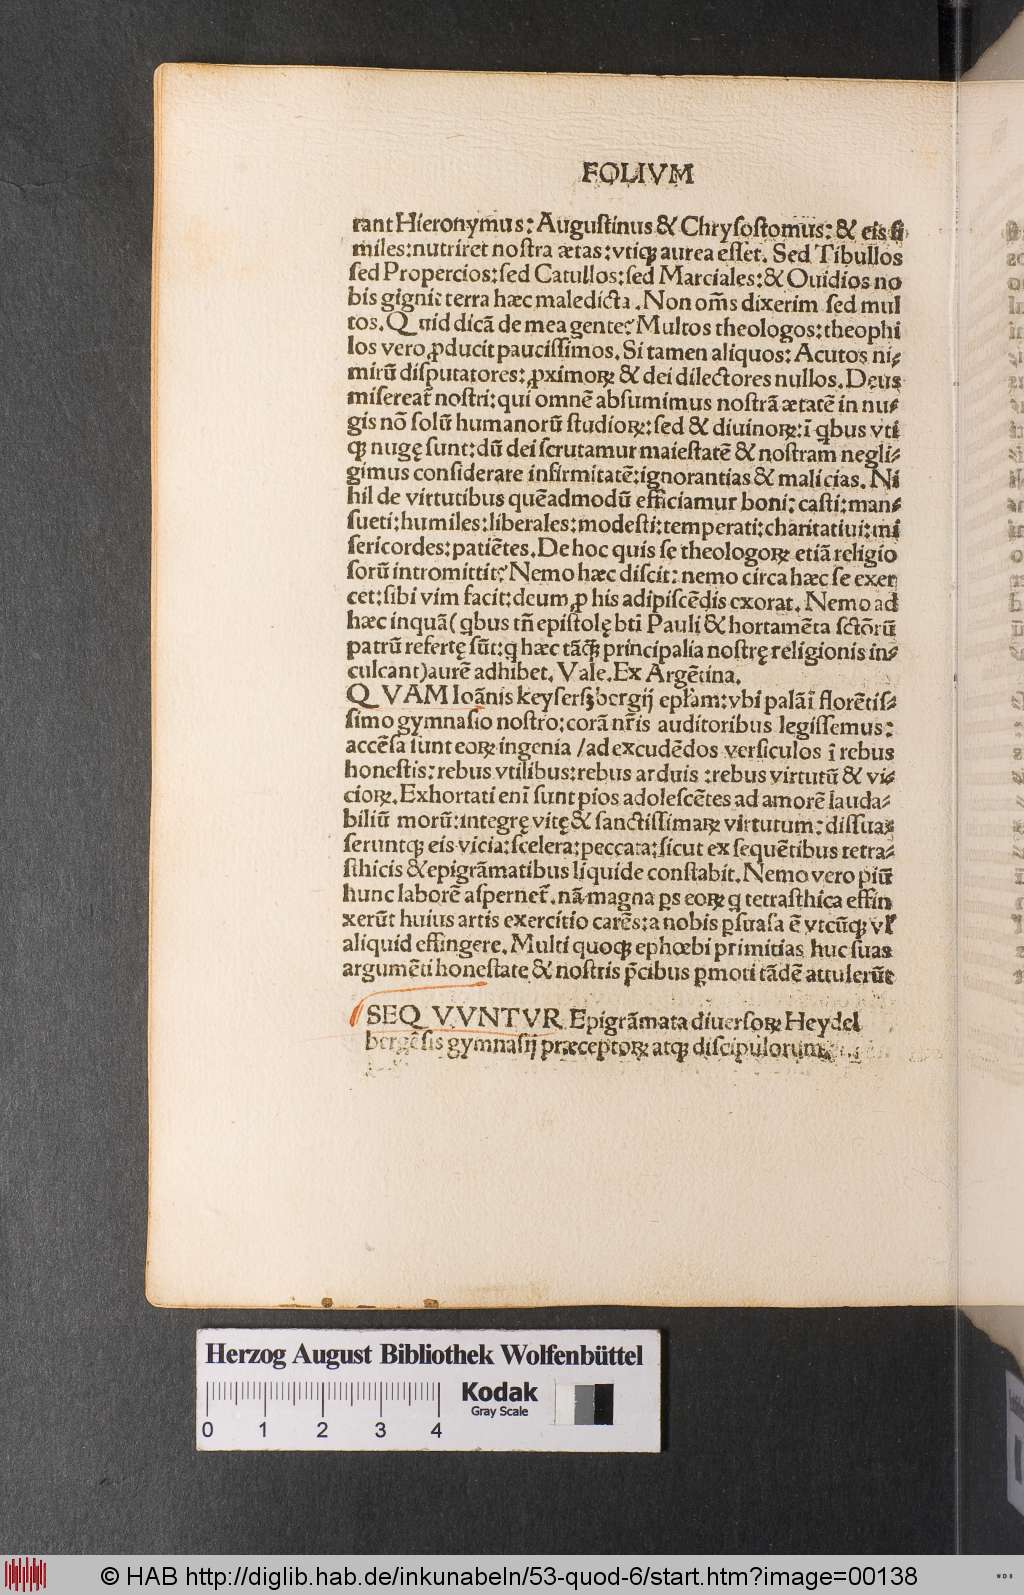 FOLIVM
rant Hieronymus: Auguſtinus & Chryſoſtomus: & eis ſi
miles: nutriret noſtra ætas: vtiqꝫ aurea eſſet. Sed Tibullos
ſed Propercios: ſed Catullos: ſed Marciales: & Ouidios no
bis gignit terra hæc maledicta. Non om̄s dixerim ſed mul
tos. Quid dicā de mea gente? Multos theologos: theophi
los vero ꝓducit pauciſſimos. Si tamen aliquos: Acutos ni⸗
mirū diſputatores: ꝓximoꝝ & dei dilectores nullos. Deus
miſereat̄ noſtri: qui omnē abſumimus noſtrā ætatē in nu⸗
gis nō ſolū humanorū ſtudioꝝ: ſed & diuinoꝝ: ī q̇bus vti
qꝫ nugę ſunt: dū dei ſcrutamur maieſtatē & noſtram negli⸗
gimus conſiderare infirmitatē: ignorantias & malicias. Ni
hil de virtutibus quēadmodū efficiamur boni: caſti: man⸗
ſueti: humiles: liberales: modeſti: temperati: charitatiui: mi
ſericordes: patiētes. De hoc quis ſe theologoꝝ etiā religio
ſorū intromittit? Nemo hæc diſcit: nemo circa hæc ſe exer
cet: ſibi vim facit: deum ꝓ his adipiſcēdis exorat. Nemo ad
hæc inquā (q̇bus tn̄ epiſtolę bti Pauli & hortamēta ſctōrū
patrū refertę ſūt: q hæc tāq̄ꝫ principalia noſtrę religionis in⸗
culcant) aurē adhibet. Vale. Ex Argētina.
QVAM Ioānis keyſerſzbergij epłam: vbi palā ī florētiſ⸗
ſimo gymnaſio noſtro: corā nr̄is auditoribus legiſſemus:
accēſa ſunt eoꝝ ingenia / ad excudēdos verſiculos ī rebus
honeſtis: rebus vtilibus: rebus arduis: rebus virtutū & vi⸗
cioꝝ. Exhortati enī ſunt pios adoleſcētes ad amorē lauda⸗
biliū morū: integrę vitę & ſanctiſſimaꝝ virtutum: diſſuas
ſeruntqꝫ eis vicia: ſcelera: peccata: ſicut ex ſequētibus tetra⸗
ſthicis & epigrāmatibus liquide conſtabit. Nemo vero piū
hunc laborē aſpernet̄. nā magna ꝑs eoꝝ q tetraſthica effin
xerūt huius artis exercitio carēs: a nobis ꝑſuaſa ē vtcūqꝫ vł
aliquid effingere. Multi quoqꝫ ephœbi primitias huc ſuas
argumēti honeſtate & noſtris p̄cibus ꝑmoti tādē attulerūt
SEQVVNTVR Epigrāmata diuerſoꝝ Heydel
bergēſis gymnaſij præceptoꝝ atqꝫ diſcipulorum
Herzog August Bibliothek Wolfenbüttel
0 1 2 3 4
Kodak
Gray Scale
© HAB http://diglib.hab.de/inkunabeln/53-quod-6/start.htm?image=00138